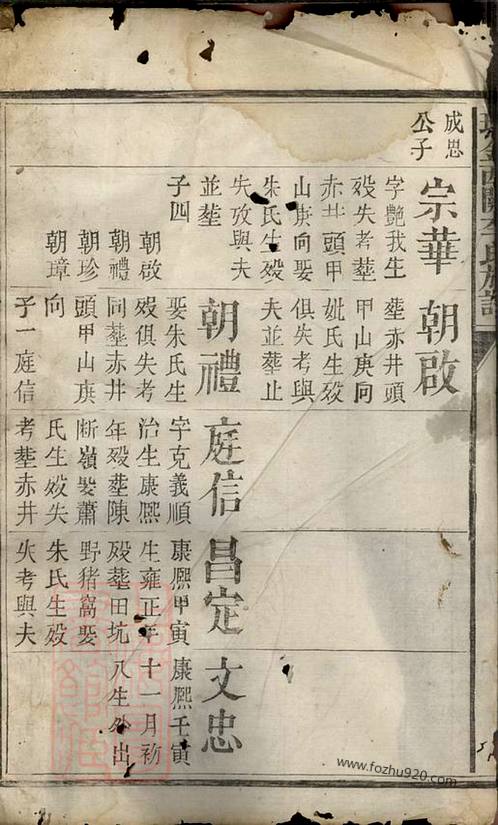 成思
公子
宗華
字艷我生
歿失考塟
赤井頭甲
山庚向娶
朱氏生歿
失攷與夫
並塟
子四
朝啟
朝禮
朝珍
朝璋
朝啟
塟赤井頭
甲山庚向
妣氏生歿
俱失考與
夫並塟止
朝禮
娶朱氏生
歿俱失考
同塟赤井
頭甲山庚
向
子一庭信
庭信
字克義順
治生康熙
年歿塟陳
斷嶺娶蕭
氏生歿失
考塟赤井
昌定
康熙甲寅
生雍正年
歿塟田坑
野猪窩娶
朱氏生歿
失考與夫
文忠
康熙壬寅
十一月初
八生外出
www.fozhu920.com